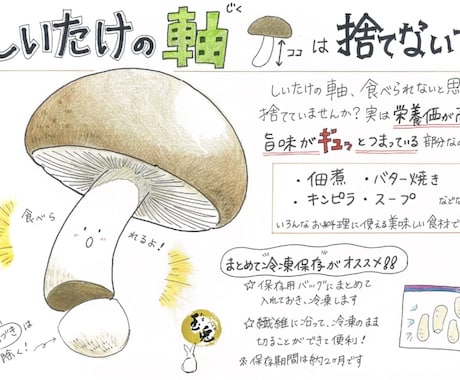 しいたけの軸は捨てないで
じく
ココ
しいたけの軸、食べられないと思
捨てていませんか？実は栄養価が
旨味がギュッとつまっている部分なの
・佃煮 ・バター焼き
・キンピラ・スープ などな
いろんなお料理に使える美味しい食材で
食べら
れるよ！
まとめて冷凍保存がオススメ
☆保存用バッグにまとめて
入れておき、冷凍します
☆繊維に沿って、冷凍のまま
切ることができて便利！
※保存期間は約2ヶ月です
づきは
除く！